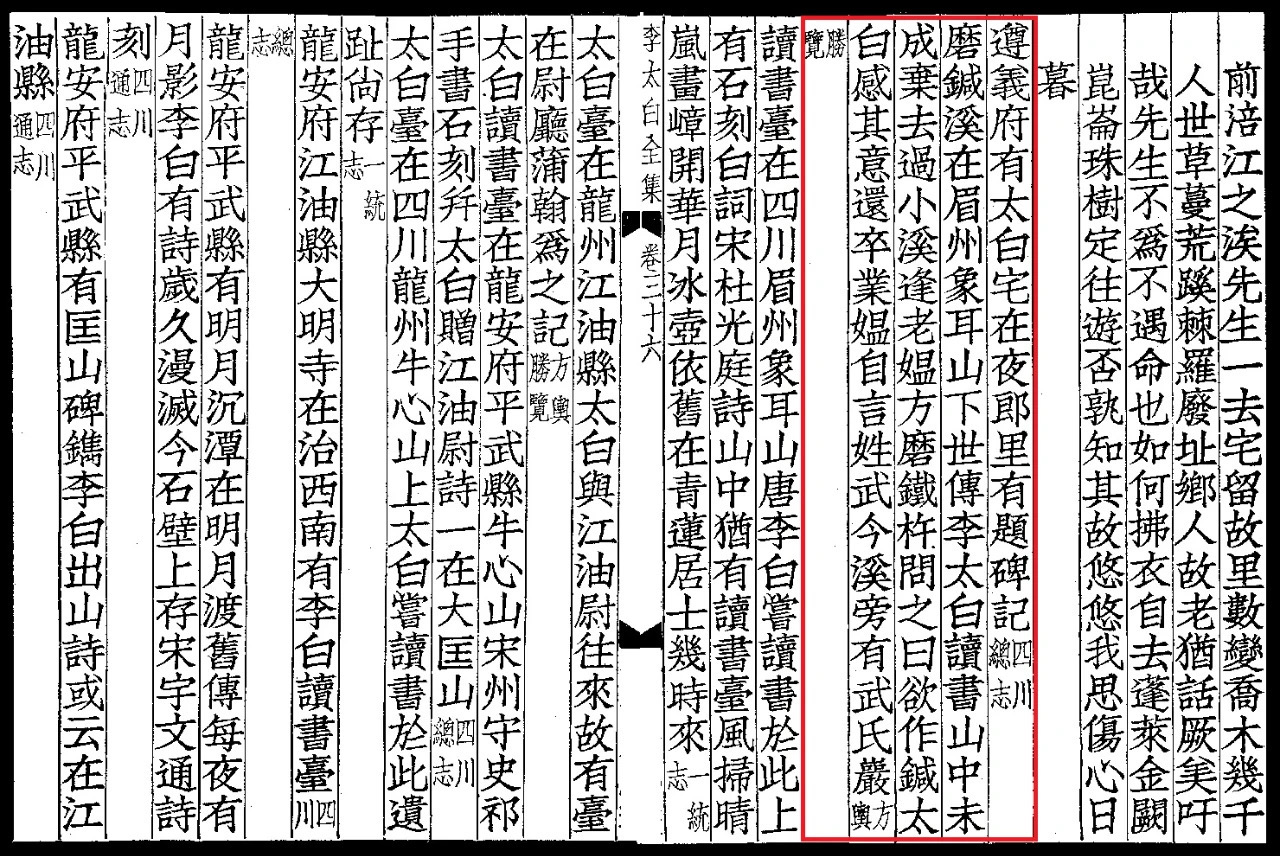 前涪江之涘先生一去宅留故里數變喬木幾千
人世草蔓荒蹊棘羅廢址鄉人故老猶話厥美吁
哉先生不爲不遇命也如何拂衣自去蓬萊金闕
崑崙珠樹定往遊否孰知其故悠悠我思傷心日
暮
遵義府有太白宅在夜郎里有題碑記四川總志
磨鍼溪在眉州象耳山下世傳李太白讀書山中未
成棄去過小溪逢老媼方磨鐵杵問之曰欲作鍼太
白感其意還卒業媼自言姓武今溪旁有武氏巖方輿
勝覽
讀書臺在四川眉州象耳山唐李白嘗讀書於此上
有石刻白詞宋杜光庭詩山中猶有讀書臺風掃晴
嵐畫嶂開華月冰壺依舊在青蓮居士幾時來一統志
李太白全集 卷三十六
太白臺在龍州江油縣太白與江油尉往來故有臺
在尉廳蒲翰爲之記方輿勝覽
太白讀書臺在龍安府平武縣牛心山宋州守史祁
手書石刻幷太白贈江油尉詩一在大匡山四川總志
太白臺在四川龍州牛心山上太白嘗讀書於此遺
趾尙存一統志
龍安府江油縣大明寺在治西南有李白讀書臺四川
總志
龍安府平武縣有明月沉潭在明月渡舊傳每夜有
月影李白有詩歲久漫滅今石壁上存宋宇文通詩
刻四川通志
龍安府平武縣有匡山碑鐫李白出山詩或云在江
油縣四川通志